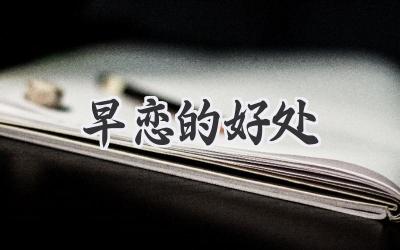 早恋的好处